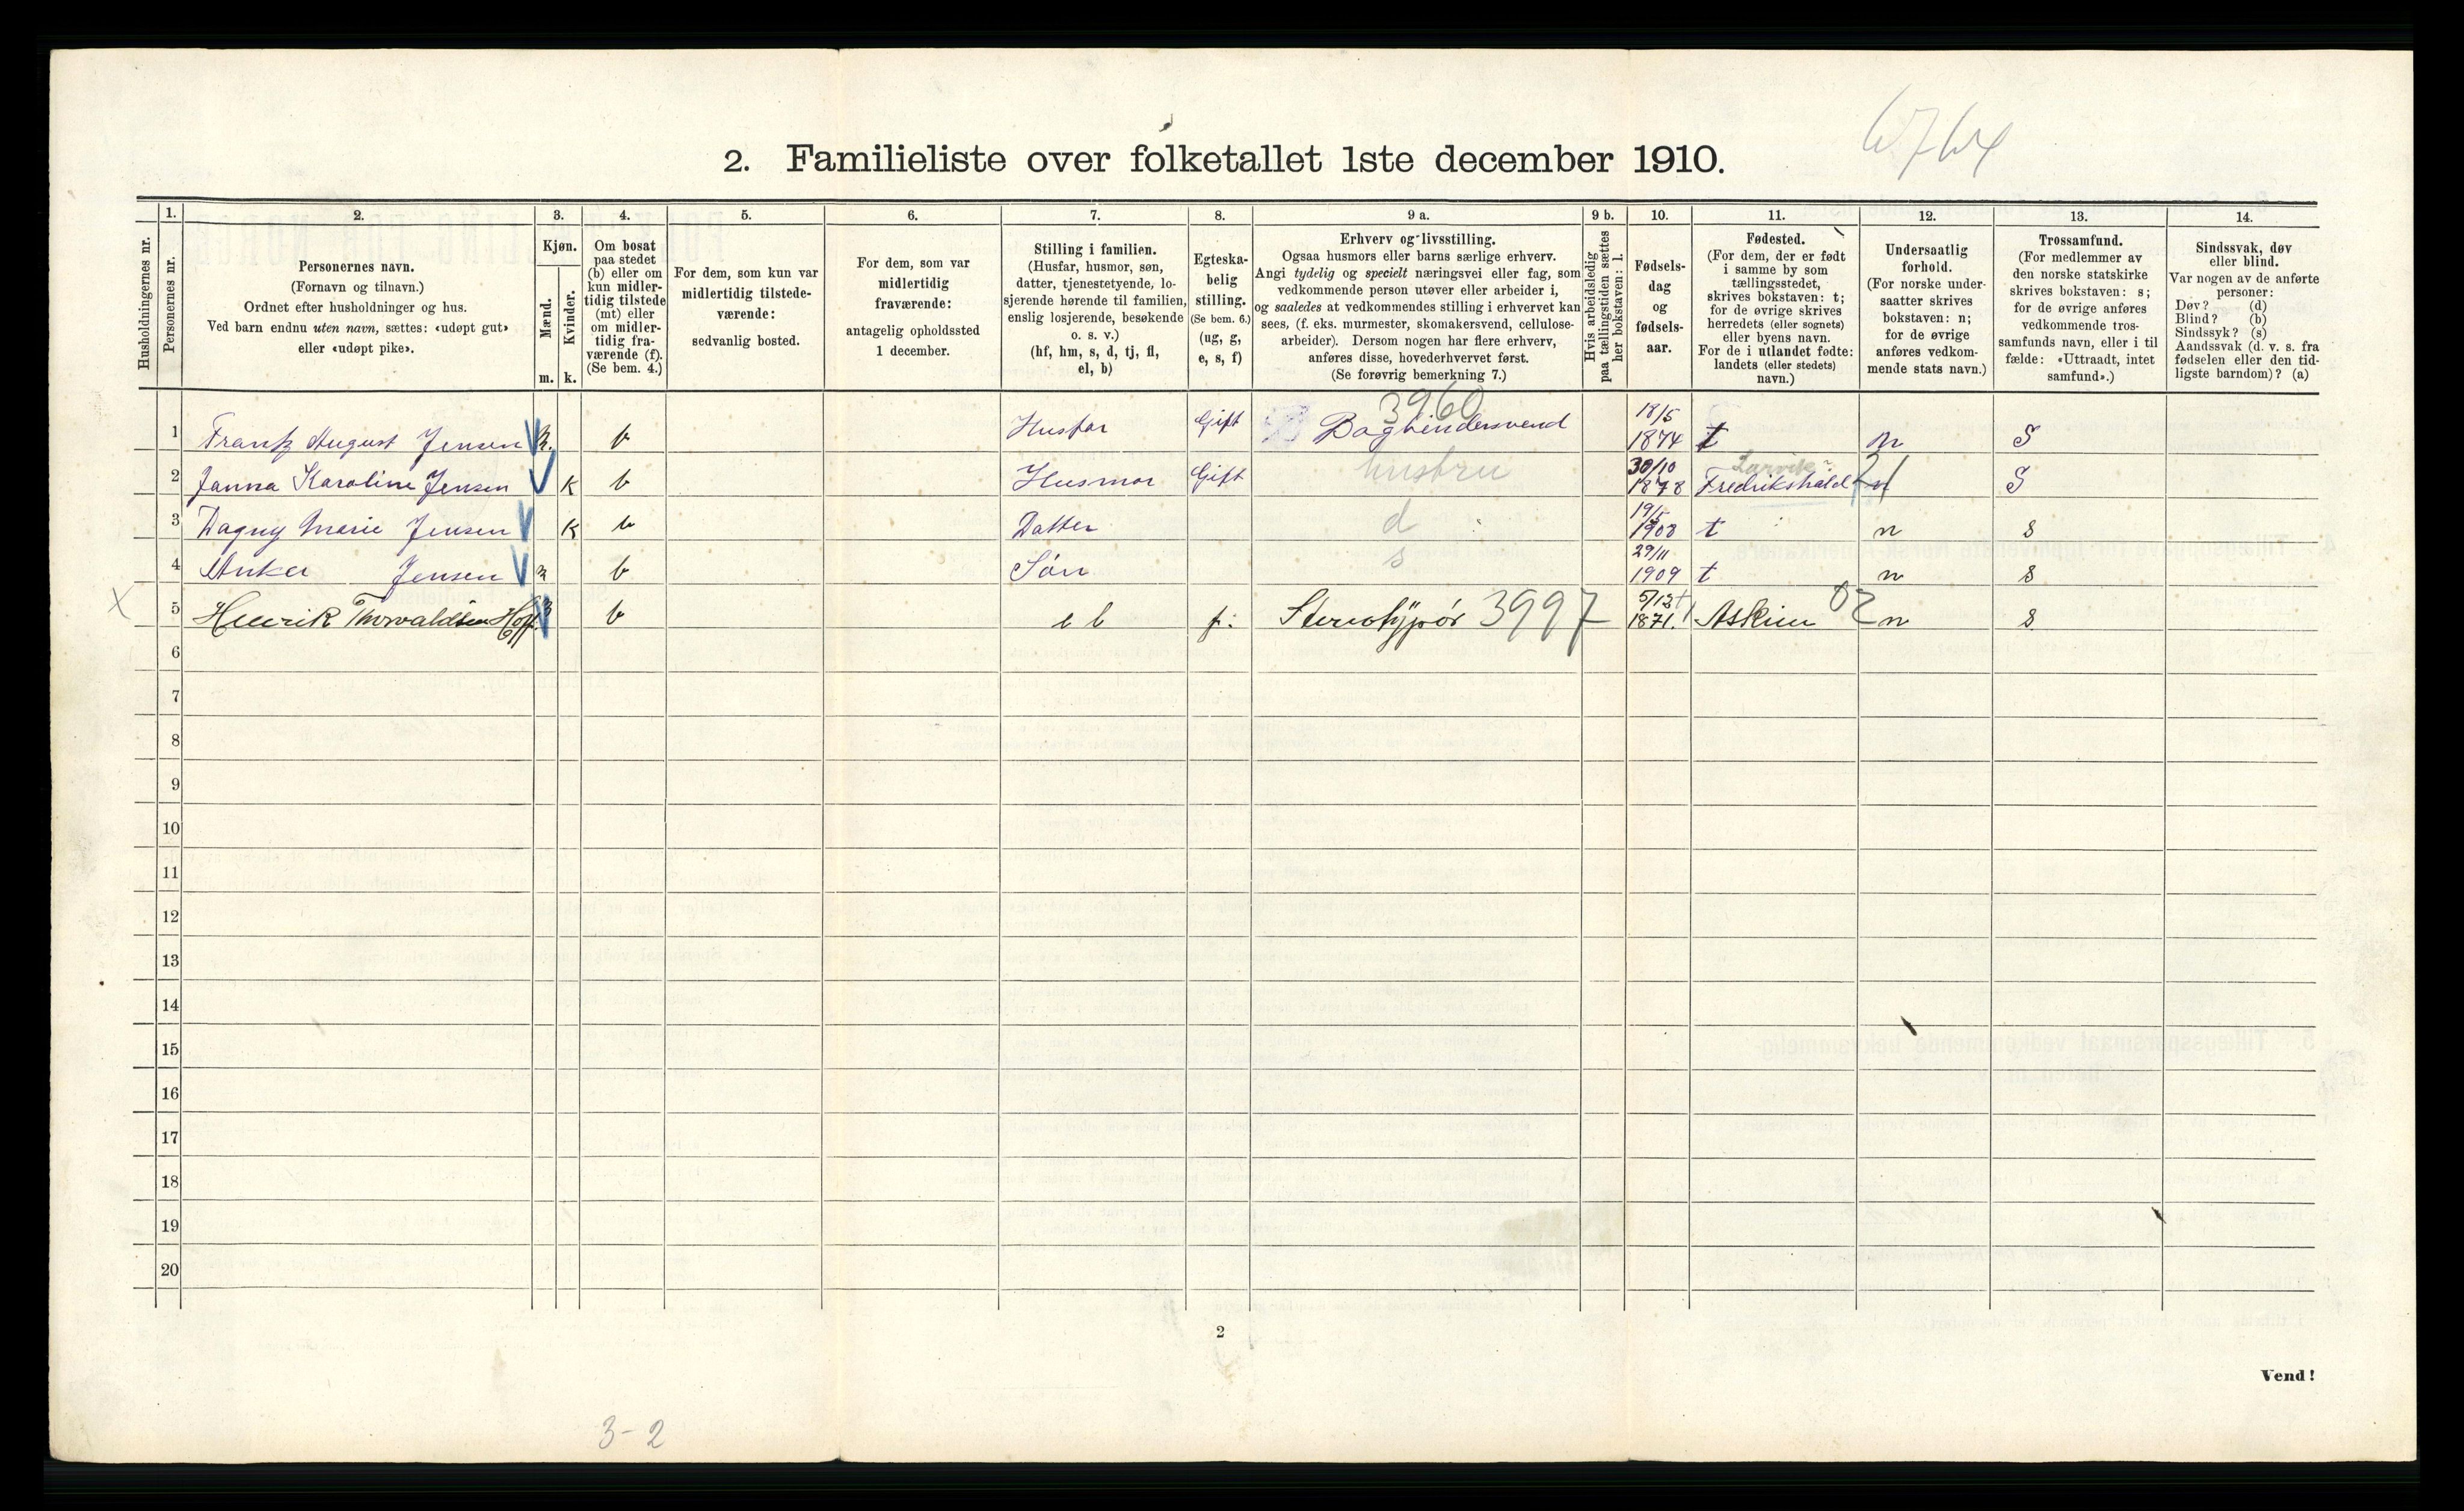 6764
2. Familieliste over folketallet 1ste december 1910.
Husholdningernes nr.
1.
Personernes nr.
2.
Personernes navn.
(Fornavn og tilnavn.)
Ordnet efter husholdninger og hus.
Ved barn endnu uten navn, sættes: «udøpt gut»
eller «udøpt pike».
3.
Kjøn.
Mænd.
Kvinder.
m. k.
4.
Om bosat
paa stedet
(b) eller om
kun midler-
tidig tilstede
(mt) eller
om midler-
tidig fra-
værende (f).
(Se bem. 4.)
5.
For dem, som kun var
midlertidig tilstede-
værende:
sedvanlig bosted.
6.
For dem, som var
midlertidig
fraværende:
antagelig opholdssted
1 december.
7.
Stilling i familien.
(Husfar, husmor, søn,
datter, tjenestetyende, lo-
sjerende hørende til familien,
enslig losjerende, besøkende
o. s. v.)
(hf, hm, s, d, tj, fl,
el, b)
8.
Egteska-
belig
stilling.
(Se bem. 6.)
(ug, g,
e, s, f)
9 a.
Erhverv og livsstilling.
Ogsaa husmors eller barns særlige erhverv.
Angi tydelig og specielt næringsvei eller fag, som
vedkommende person utøver eller arbeider i,
og saaledes at vedkommendes stilling i erhvervet kan
sees, (f. eks. murmester, skomakersvend, cellulose-
arbeider). Dersom nogen har flere erhverv,
anføres disse, hovederhvervet først.
(Se forøvrig bemerkning 7.)
9 b.
Hvis arbeidsledig
paa tællingstiden sættes
her bokstaven: l.
10.
Fødsels-
dag
og
fødsels-
aar.
11.
Fødested.
(For dem, der er født
i samme by som
tællingsstedet,
skrives bokstaven: t;
for de øvrige skrives
herredets (eller sognets)
eller byens navn.
For de i utlandet fødte:
landets (eller stedets)
navn.)
12.
Undersaatlig
forhold.
(For norske under-
saatter skrives
bokstaven: n;
for de øvrige
anføres vedkom-
mende stats navn.)
13.
Trossamfund.
(For medlemmer av
den norske statskirke
skrives bokstaven: s;
for de øvrige anføres
vedkommende tros-
samfunds navn, eller i til
fælde: «Uttraadt, intet
samfund».)
14.
Sindssvak, døv
eller blind.
Var nogen av de anførte
personer:
Døv? (d)
Blind? (b)
Sindssyk? (s)
Aandssvak (d. v. s. fra
fødselen eller den tid-
ligste barndom)? (a)
3960
1 Frantz August Jensen m. b Husfar Gift Bogbindersvend 18/5 1874 t n S
2 Janna Karoline Jensen k b Husmor Gift hustru 30/10 1878 Larvik? Fredrikshald n S
3 Dagny Marie Jensen k b Datter d 19/5 1908 t n s
4 Anker Jensen m b Søn s 29/11 1909 t n s
X 5 Henrik Thorvaldsen Hoff. m b el f: Stereotypør 3997 5/12 1871. Askim 02 n s
6
7
8
9
10
11
12
13
14
15
16
17
18
19
20
2
Vend!
3-2